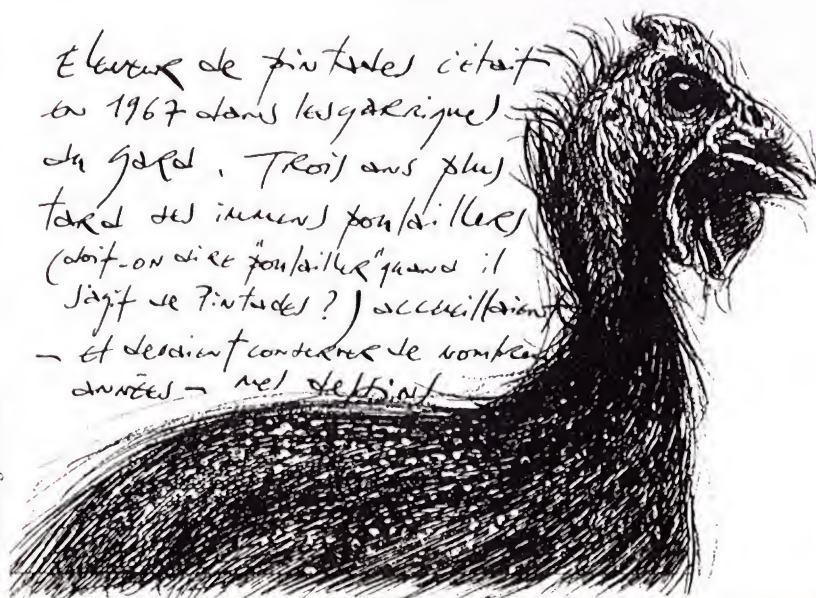 Eleveur de pintades c'était
en 1967 dans les garrigues
du Gard. Trois ans plus
tard des immens poulaillers
(doit-on dire "poulailler" quand il
s'agit de Pintades ?) accueillaient
– et devaient conserver de nombreu
années – mes dessins.